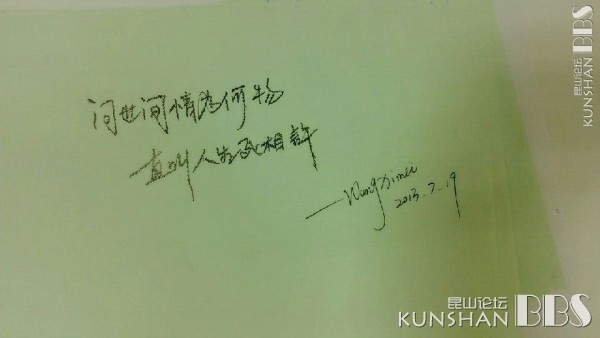 问世间情为何物
直叫人生死相许
—Wang Ximei
2013.7.19
昆山论坛 BBS
KUNSHAN
昆山论坛 BBS
KUNSHAN